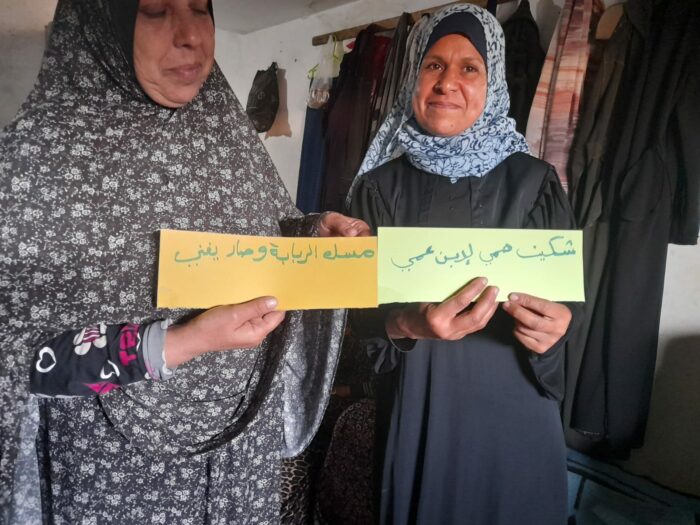 شكيت همي لابن عمي
مسك الربابة وصار يغني